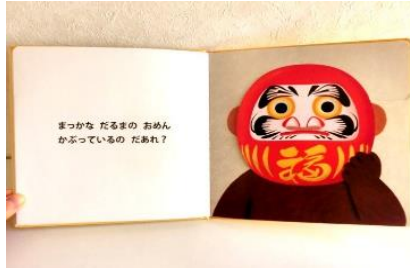 まっかな だるまの おめん
かぶっているの だあれ？
福